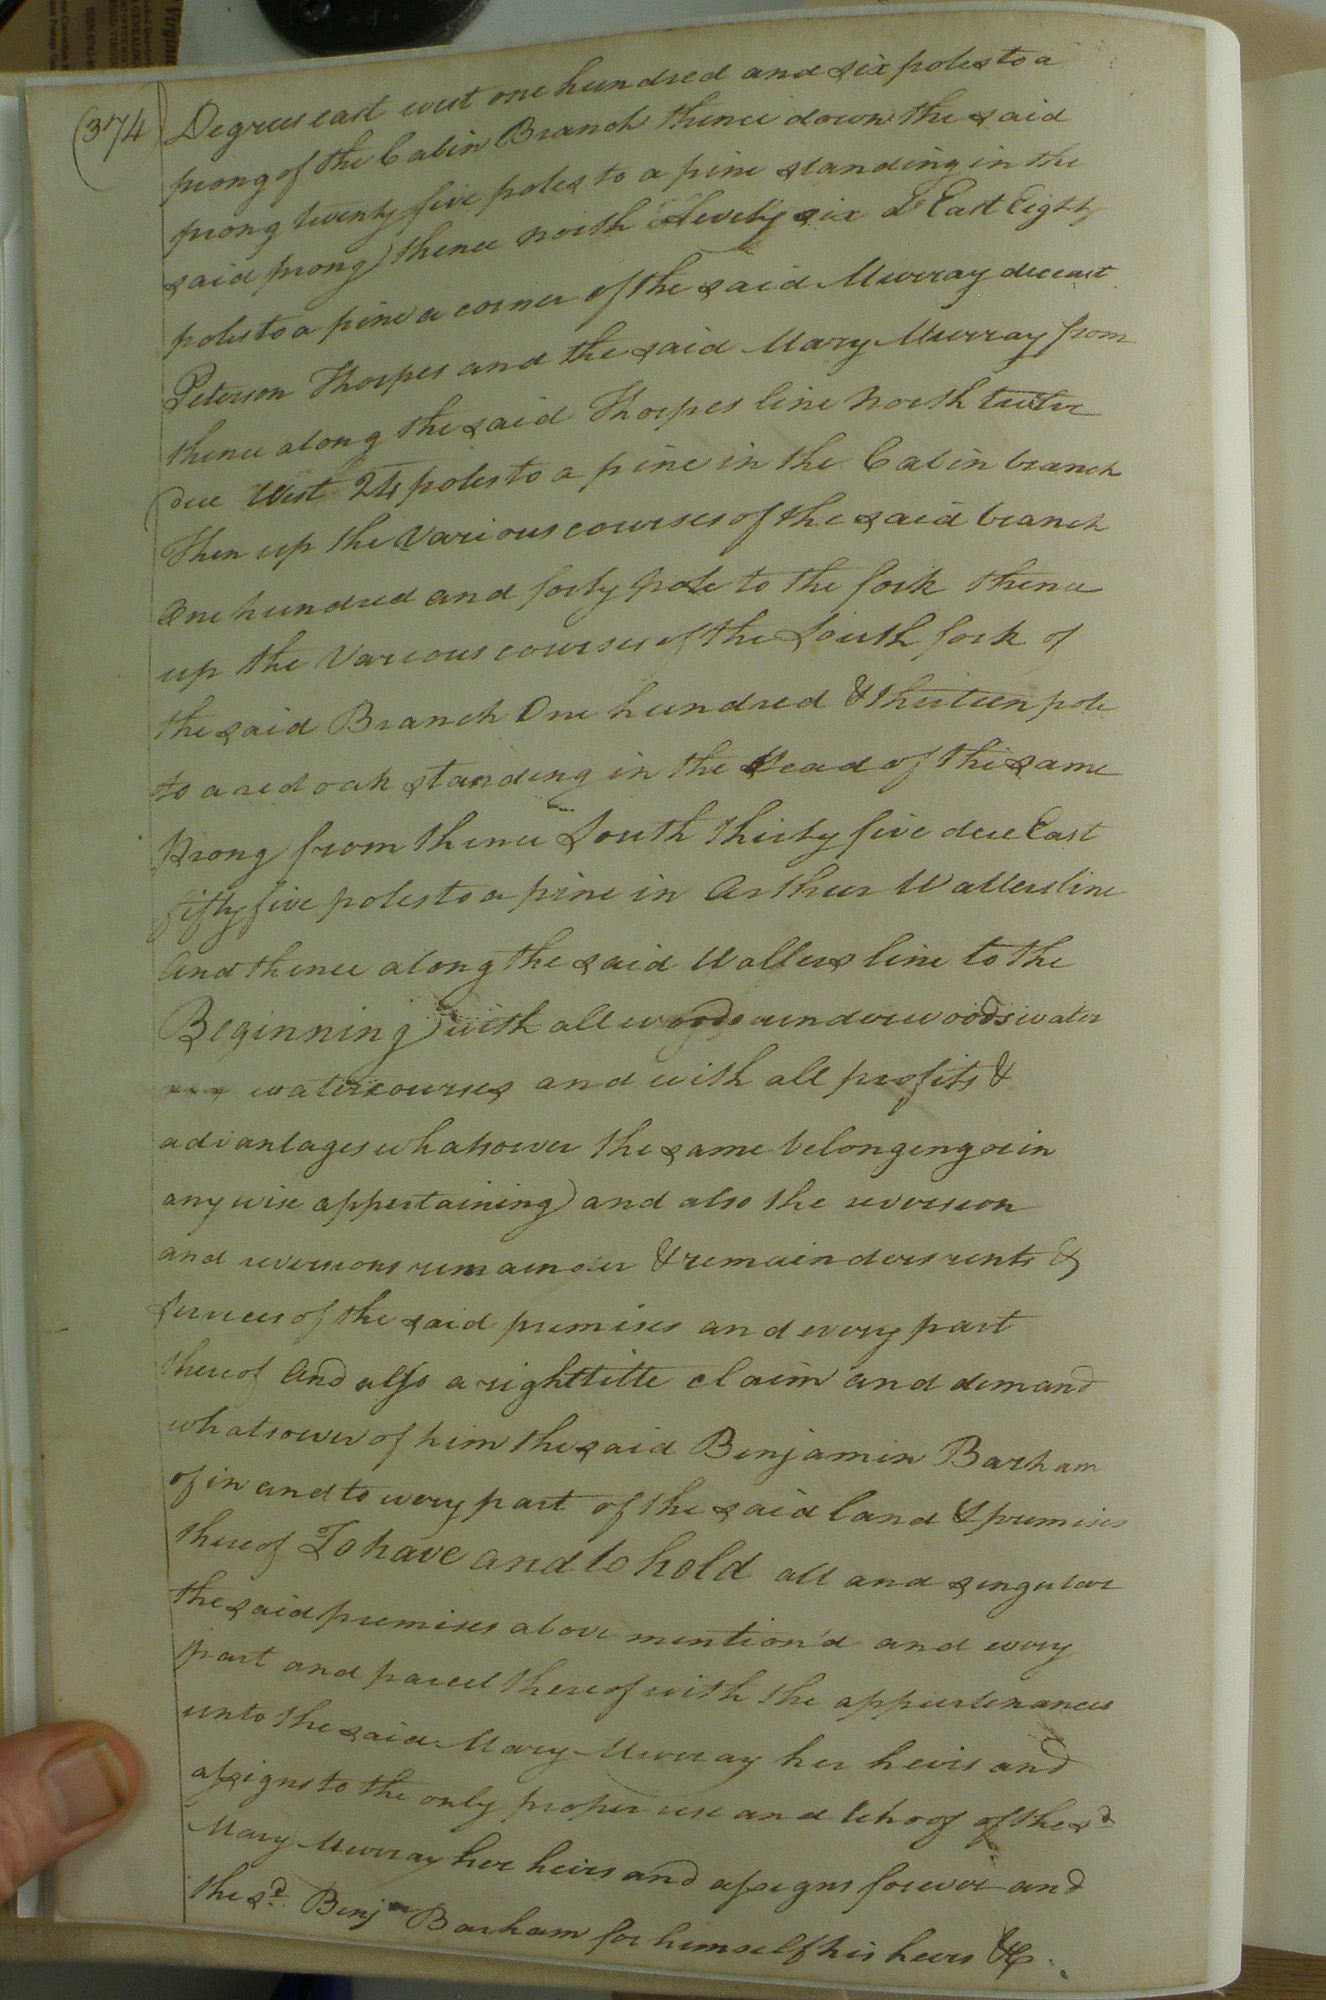 (374
Degrees east west one hundred and six poles to a
prong of the Cabin Branch thence down the said
prong twenty five poles to a pine standing in the
said prong) thence north Seventy six De East Eighty
poles to a pine a corner of the said Murray deceast
Peterson Thorpes and the said Mary Murray from
thence along the said Thorpes line North twelve
due West 24 poles to a pine in the Cabin branch
Then up the Various courses of the said branch
One hundred and forty pole to the fork thence
up the Various courses of the South fork of
the said Branch One hundred & thirteen pole
to a red oak standing in the Head of the same
Prong from thence South Thirty five dee East
fifty five poles to a pine in Arthur Wallers line
And thence along the said Wallers line to the
Beginning) with all woods underwoods water
watercourses and with all profits &
advantages whatsover the same belonging or in
any wise appertaining) and also the reversion
and reversions remainder & remainders rents &
services of the said premises and every part
thereof And also a right title claim and demand
whatsoever of him the said Benjamin Barham
of in and to every part of the said land & premises
thereof To have and to hold all and singular
the said premises above mention'd and every
part and parcel thereof with the appurtenances
unto the said Mary Murray her heirs and
assigns to the only proper use and behoof of the sd
Mary Murray her heirs and assigns forever and
the sd. Benjm Barham for himself his heirs &c.